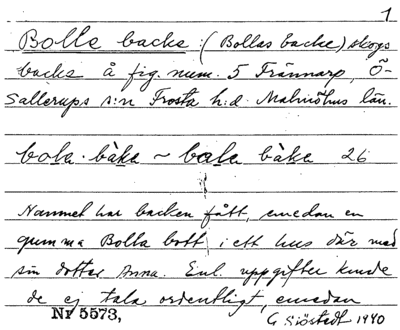 1
Bolle backe: (Bollas backe) skogs
backe å fig. num. 5 Frännarp, Ö-
Sallerups s:n Frosta h:d. Malmöhus län.
bola·bàka ~ bola bàka 26
Namnet har backen fått, emedan en
gumma Bolla bott i ett hus där med
sin dotter Anna. Enl. uppgifter kunde
de ej tala ordentligt, emedan
Nr 5573,
G Sjöstedt 1940